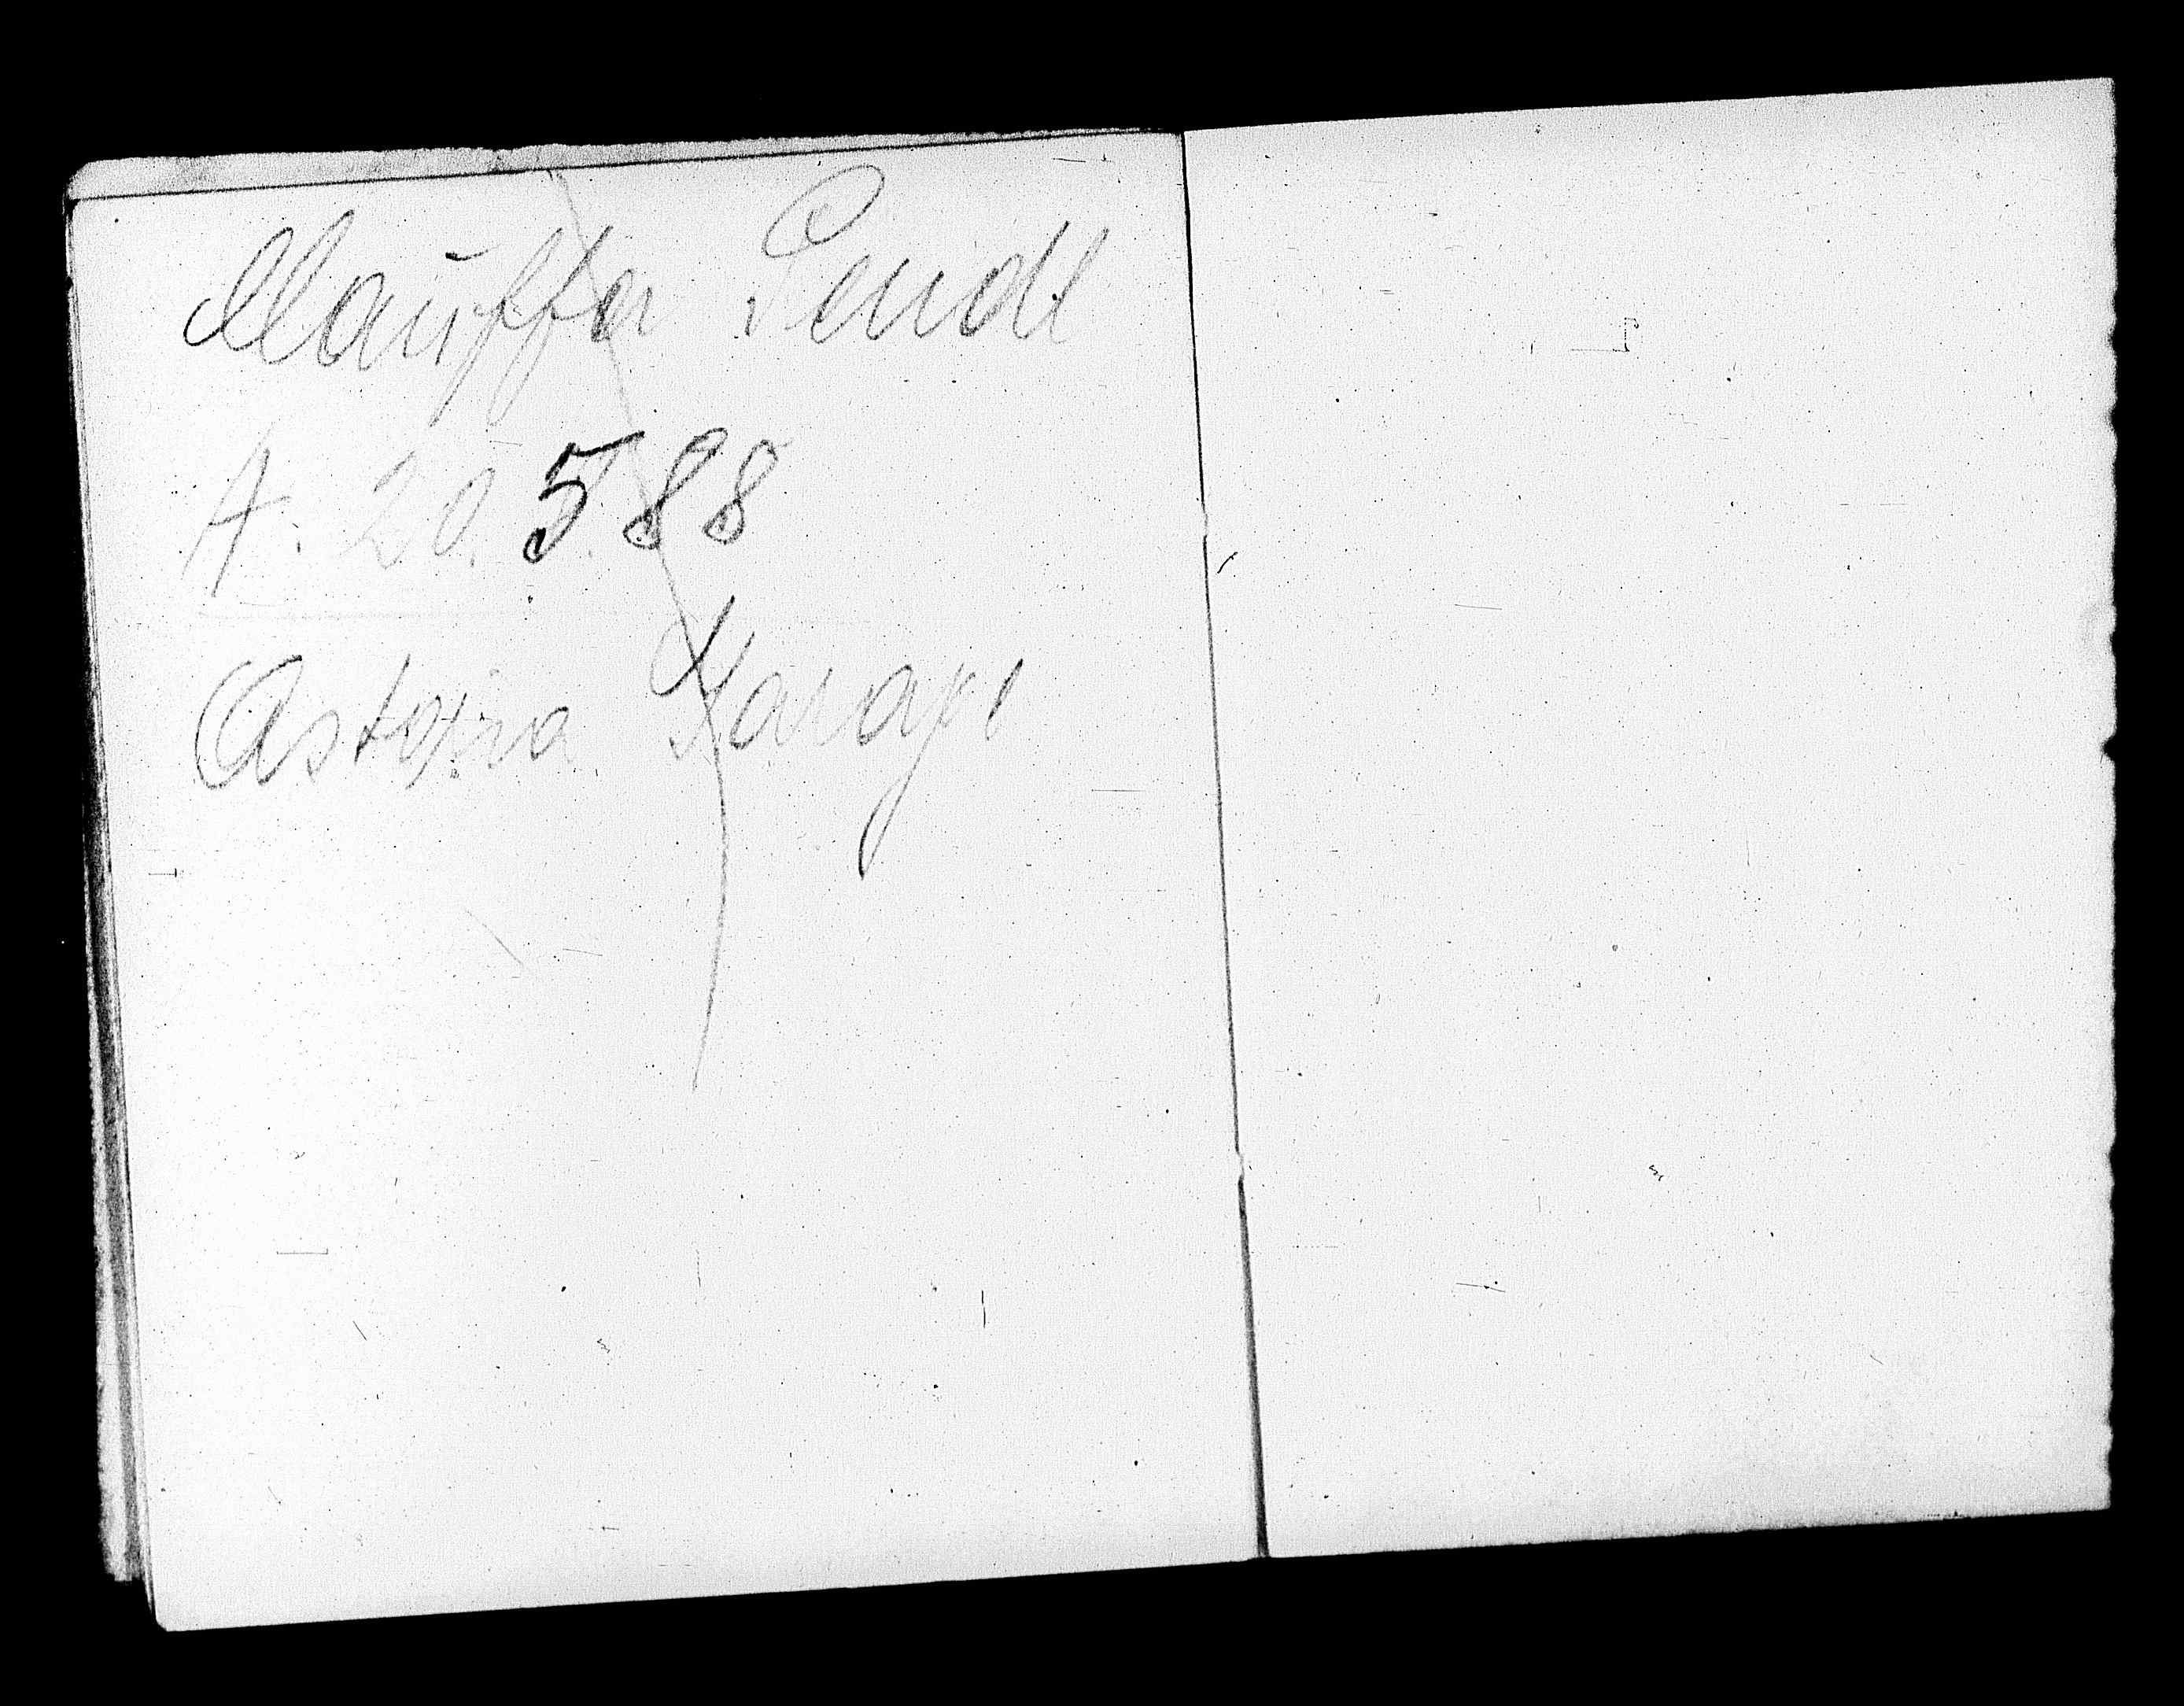 Mauffer Pendl
A. 20.588
Astoria Garage